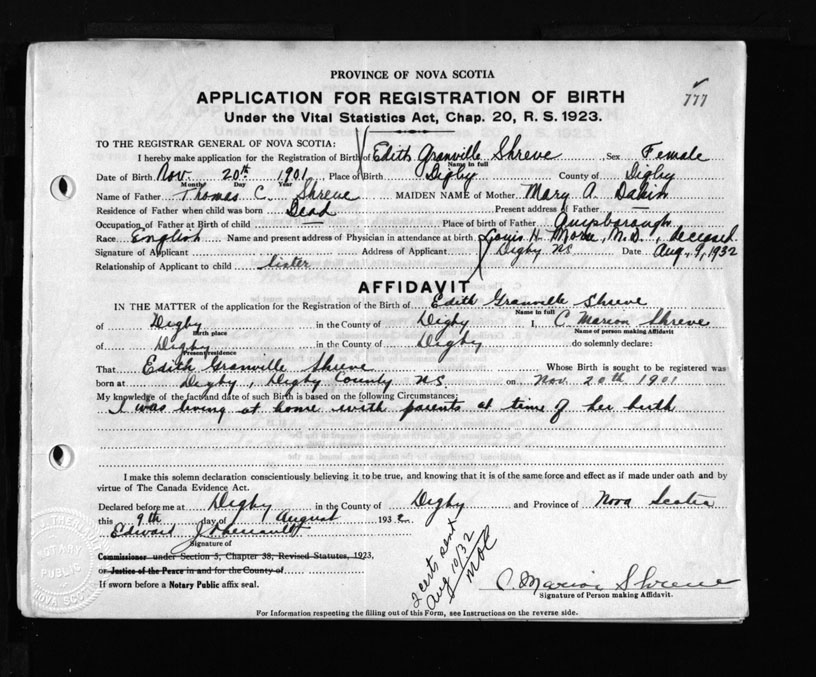 PROVINCE OF NOVA SCOTIA
777
APPLICATION FOR REGISTRATION OF BIRTH
Under the Vital Statistics Act, Chap. 20, R. S. 1923.
TO THE REGISTRAR GENERAL OF NOVA SCOTIA:
I hereby make application for the Registration of Birth of Edith Granville Shreve Sex Female
Name in full
Date of Birth Nov. 20th 1901 Place of Birth Digby County of Digby
Month Day Year
Name of Father Thomas C. Shreve MAIDEN NAME of Mother Mary A. Dakin
Residence of Father when child was born Dead Present address of Father —
Occupation of Father at Birth of child — Place of birth of Father Guysborough
Race English Name and present address of Physician in attendance at birth Louis H. Morse, M.D., deceased
Signature of Applicant Address of Applicant Digby NS Date Aug. 9, 1932
Relationship of Applicant to child Sister
AFFIDAVIT
IN THE MATTER of the application for the Registration of the Birth of Edith Granville Shreve
Name in full
of Digby in the County of Digby I, C. Marion Shreve
Birth place Name of person making Affidavit
of Digby in the County of Digby do solemnly declare:
Present residence
That Edith Granville Shreve Whose Birth is sought to be registered was
born at Digby, Digby County NS on Nov. 20th 1901
My knowledge of the fact and date of such Birth is based on the following Circumstances:
I was living at home with parents at time of her birth
I make this solemn declaration conscientiously believing it to be true, and knowing that it is of the same force and effect as if made under oath and by
virtue of The Canada Evidence Act.
Declared before me at Digby in the County of Digby and Province of Nova Scotia
this 9th day of August 1932
Edward J. Theriault
Signature of
Commissioner under Section 5, Chapter 38, Revised Statutes, 1923,
or Justice of the Peace in and for the County of
If sworn before a Notary Public affix seal.
NOTARY
PUBLIC
NOVA SCOTIA
2 certs sent
Aug 10/32
C. Marion Shreve
Signature of Person making Affidavit.
For Information respecting the filling out of this Form, see Instructions on the reverse side.